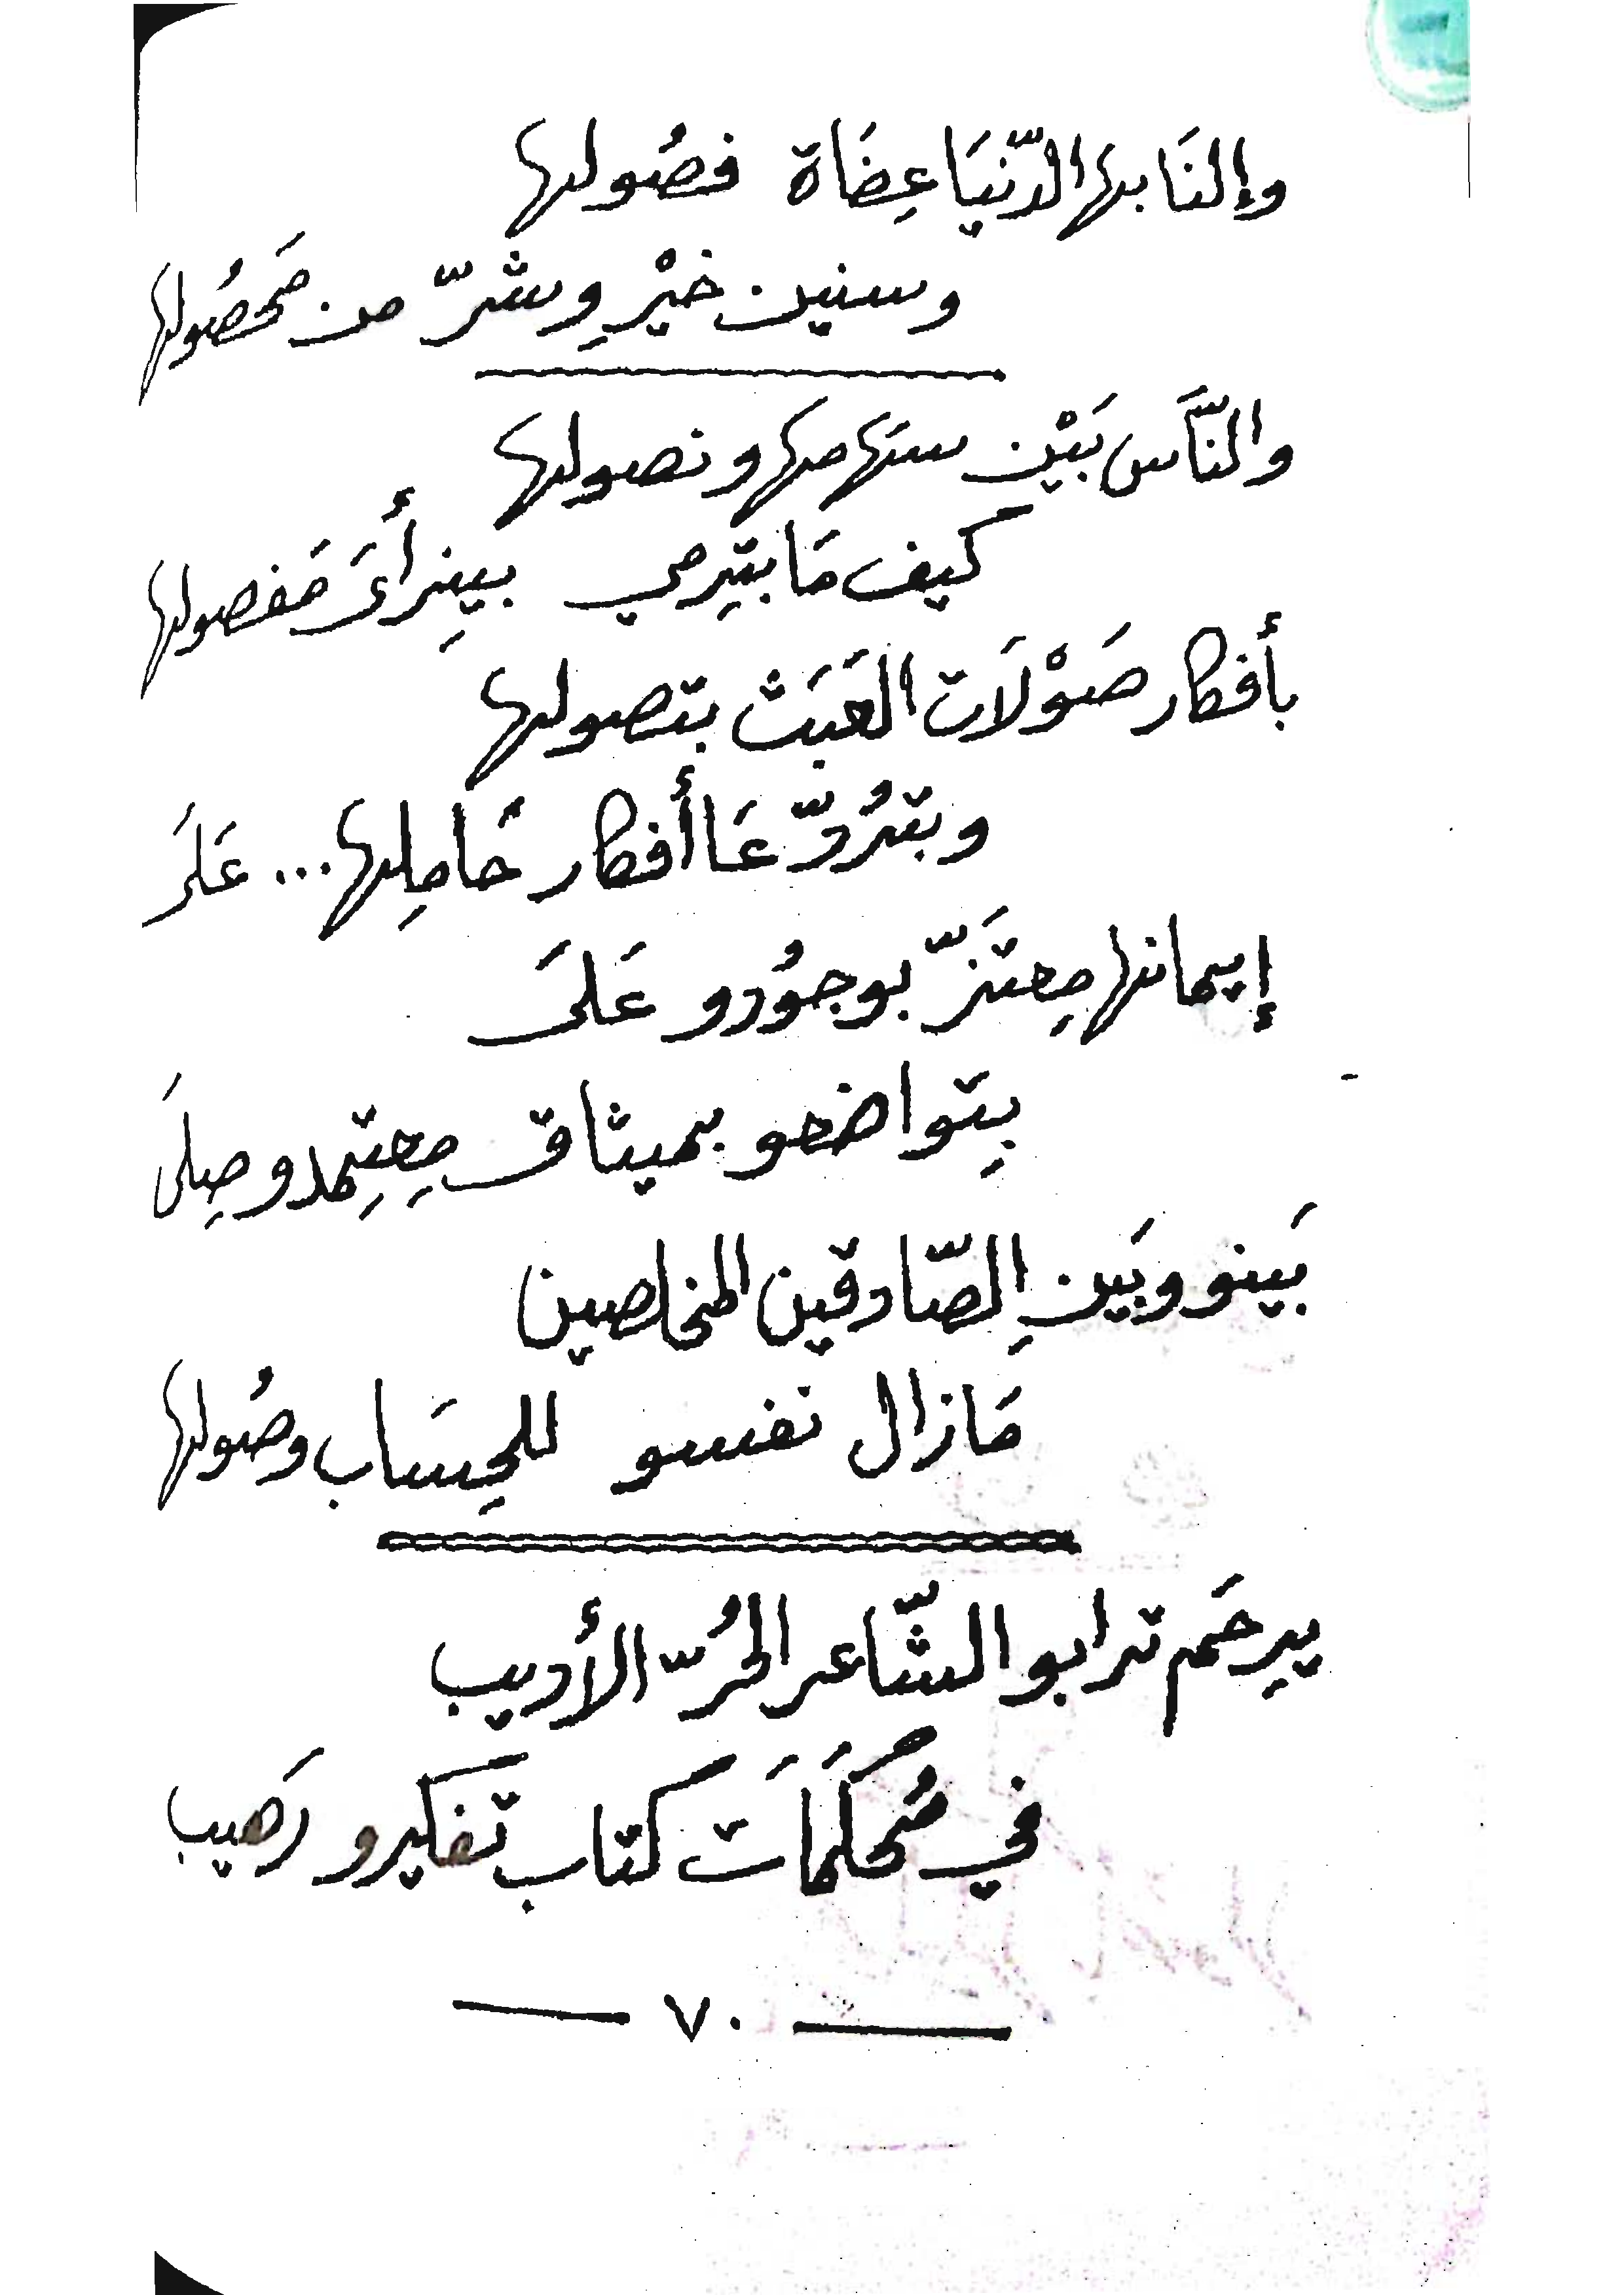 وإلنَا بها الدّنيَا عِضَاة فصُولها
وسنين خيْر وِشرّ من محَصُولها
والنَّاس بَيْن سهَامها ونصولها
كيف مَا بتِرمي بيِنرأىَ مَفصولها
بأفكار صَوْلَات العَبَث بتصولها
وبترُدّ عَا أفكار حَامِلها... عَلَى
إيمانها مِعتَزّ بوجُودو عَلىَ
بِتواضعو بميثاق مِعتِمدو صِلىَ
بَينو وبَين الصّادقين المخلصين
مَا زال نفسو للحِسَاب وصُولها
يرحَم ترابو الشّاعر الحُرّ الأديب
في محُكَمَات كتاب تفكيرو رَهيب
٧٠